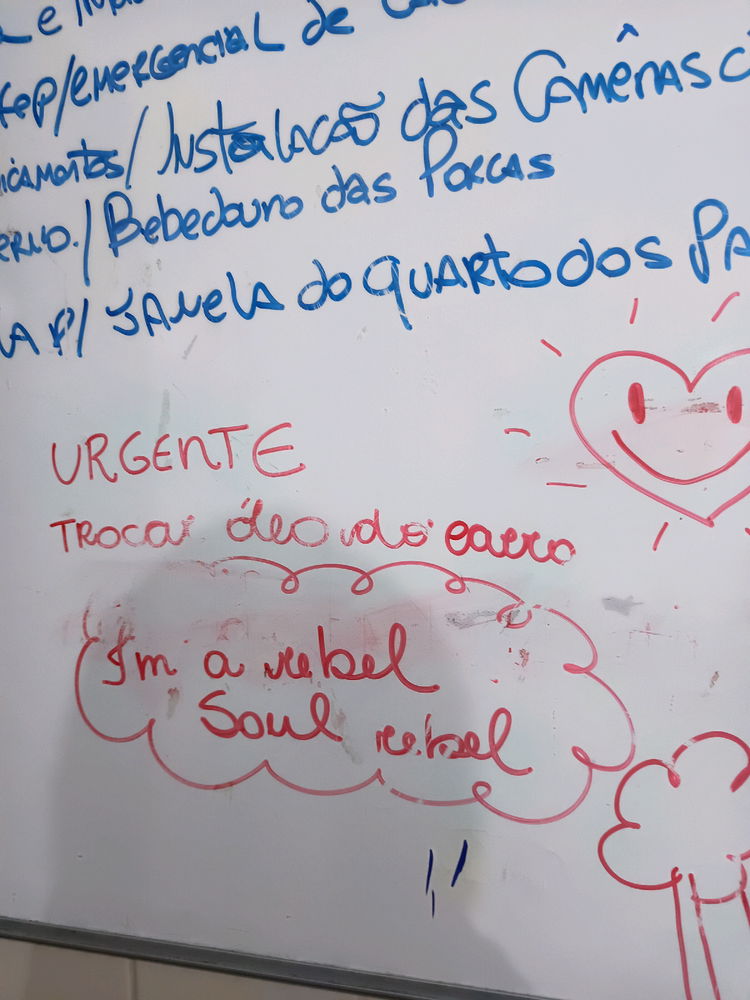 e
/emergencial de
/Instalação das Camêras
/Bebedouro das Porcas
P/ Janela do quarto dos PA
URGENTE
TROCAR óleo do carro
I'm a rebel
Soul rebel